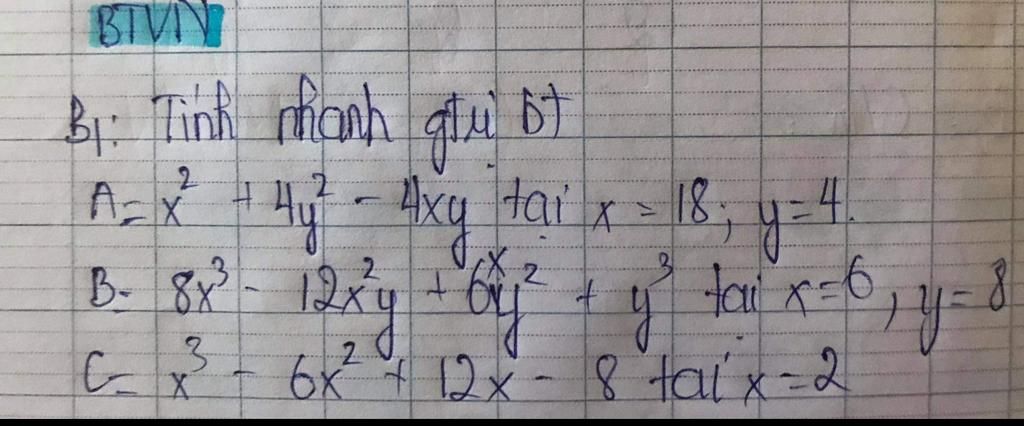 BTVN
B1: Tính nhanh gtrị bt
A = x² + 4y² - 4xy tại x = 18; y = 4.
B = 8x³ - 12x²y + 6xy² + y³ tại x = 6, y = 8
C = x³ - 6x² + 12x - 8 tại x = 2